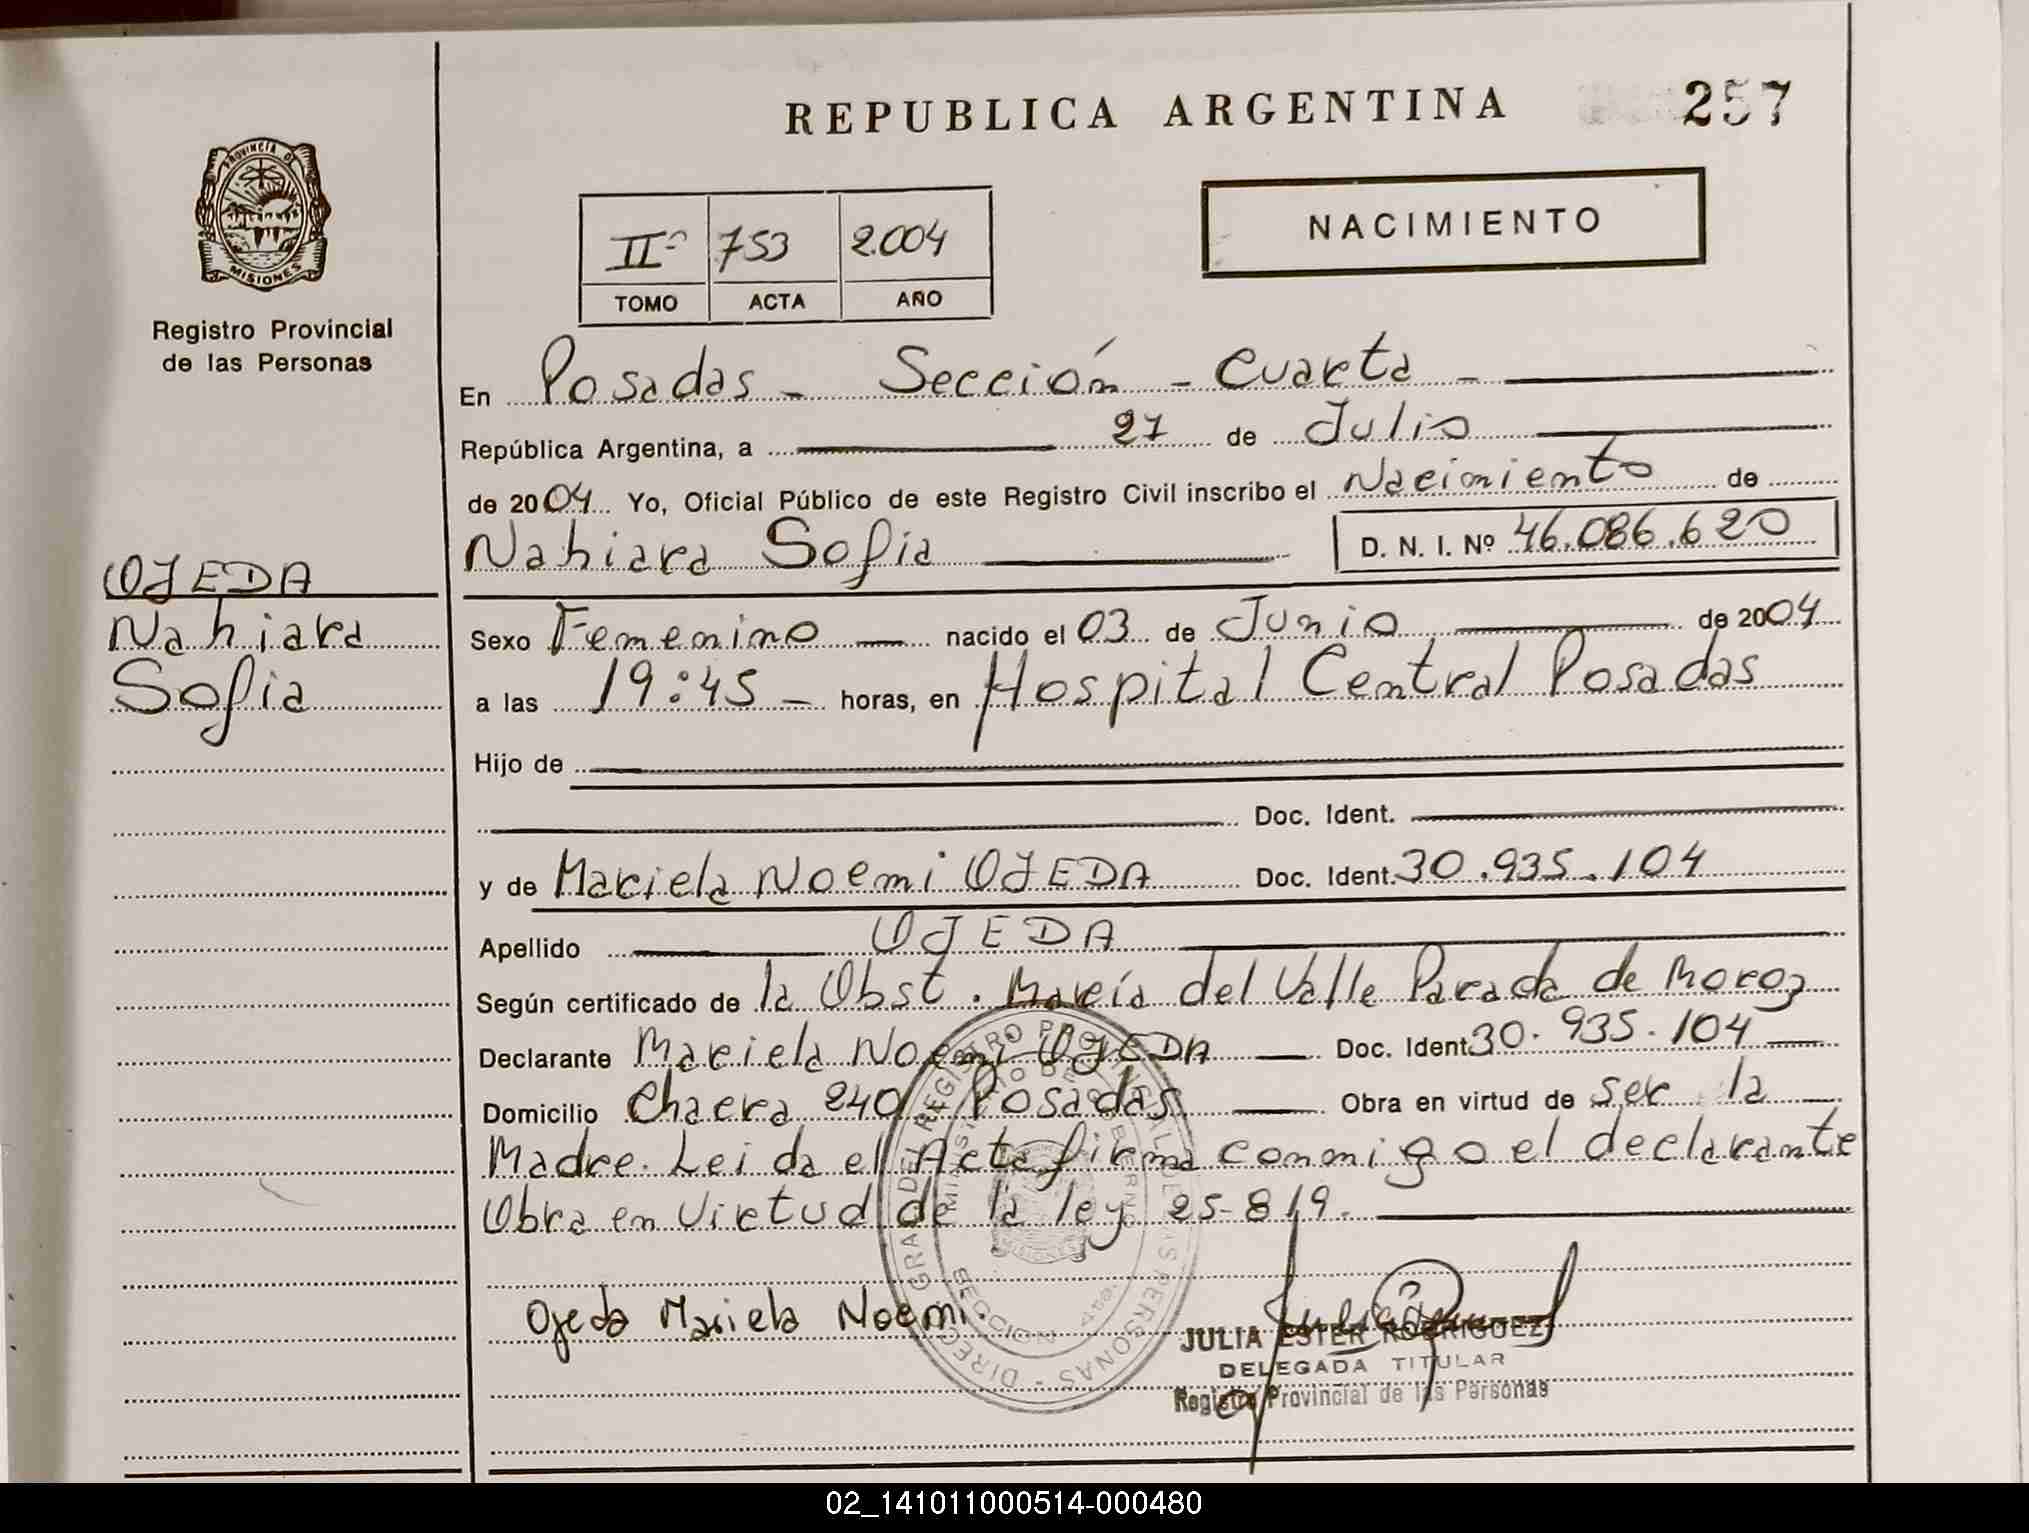 REPUBLICA ARGENTINA
257
PROVINCIA DE
MISIONES
Registro Provincial
de las Personas
IIº 753 2.004
TOMO ACTA AÑO
NACIMIENTO
En Posadas - Sección - Cuarta -
República Argentina, a 27 de Julio
de 2004 Yo, Oficial Público de este Registro Civil inscribo el Nacimiento de
Nahiara Sofia D. N. I. Nº 46.086.620
OJEDA
Nahiara
Sofia
Sexo Femenino nacido el 03 de Junio de 2004
a las 19:45 - horas, en Hospital Central Posadas
Hijo de
Doc. Ident.
y de Mariela Noemi OJEDA Doc. Ident. 30.935.104
Apellido OJEDA
Según certificado de la Obst. María del Valle Parada de Moroz
Declarante Mariela Noemi OJEDA Doc. Ident. 30.935.104
Domicilio Chacra 240 - Posadas Obra en virtud de ser la
Madre. Leida el Acta firma conmigo el declarante
Obra en Virtud de la ley 25-819.
Ojeda Mariela Noemi.
JULIA ESTER RODRIGUEZ
DELEGADA TITULAR
Registro Provincial de las Personas
02_141011000514-000480